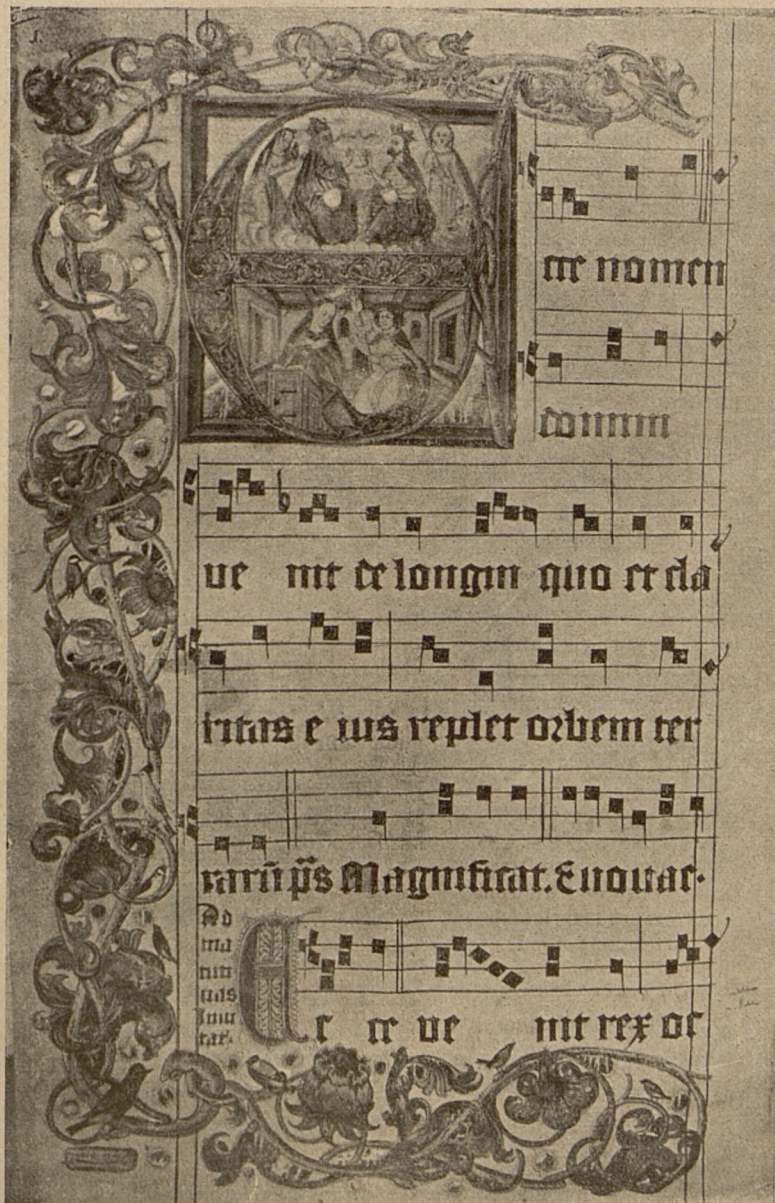 cce nomen
domini
ve nit de longin quo et cla
ritas e ius replet orbem ter
rarū p̄s Magnificat. Euouae.
Ad ma tuti nas Inui tat.
E c ce ve nit rex oc